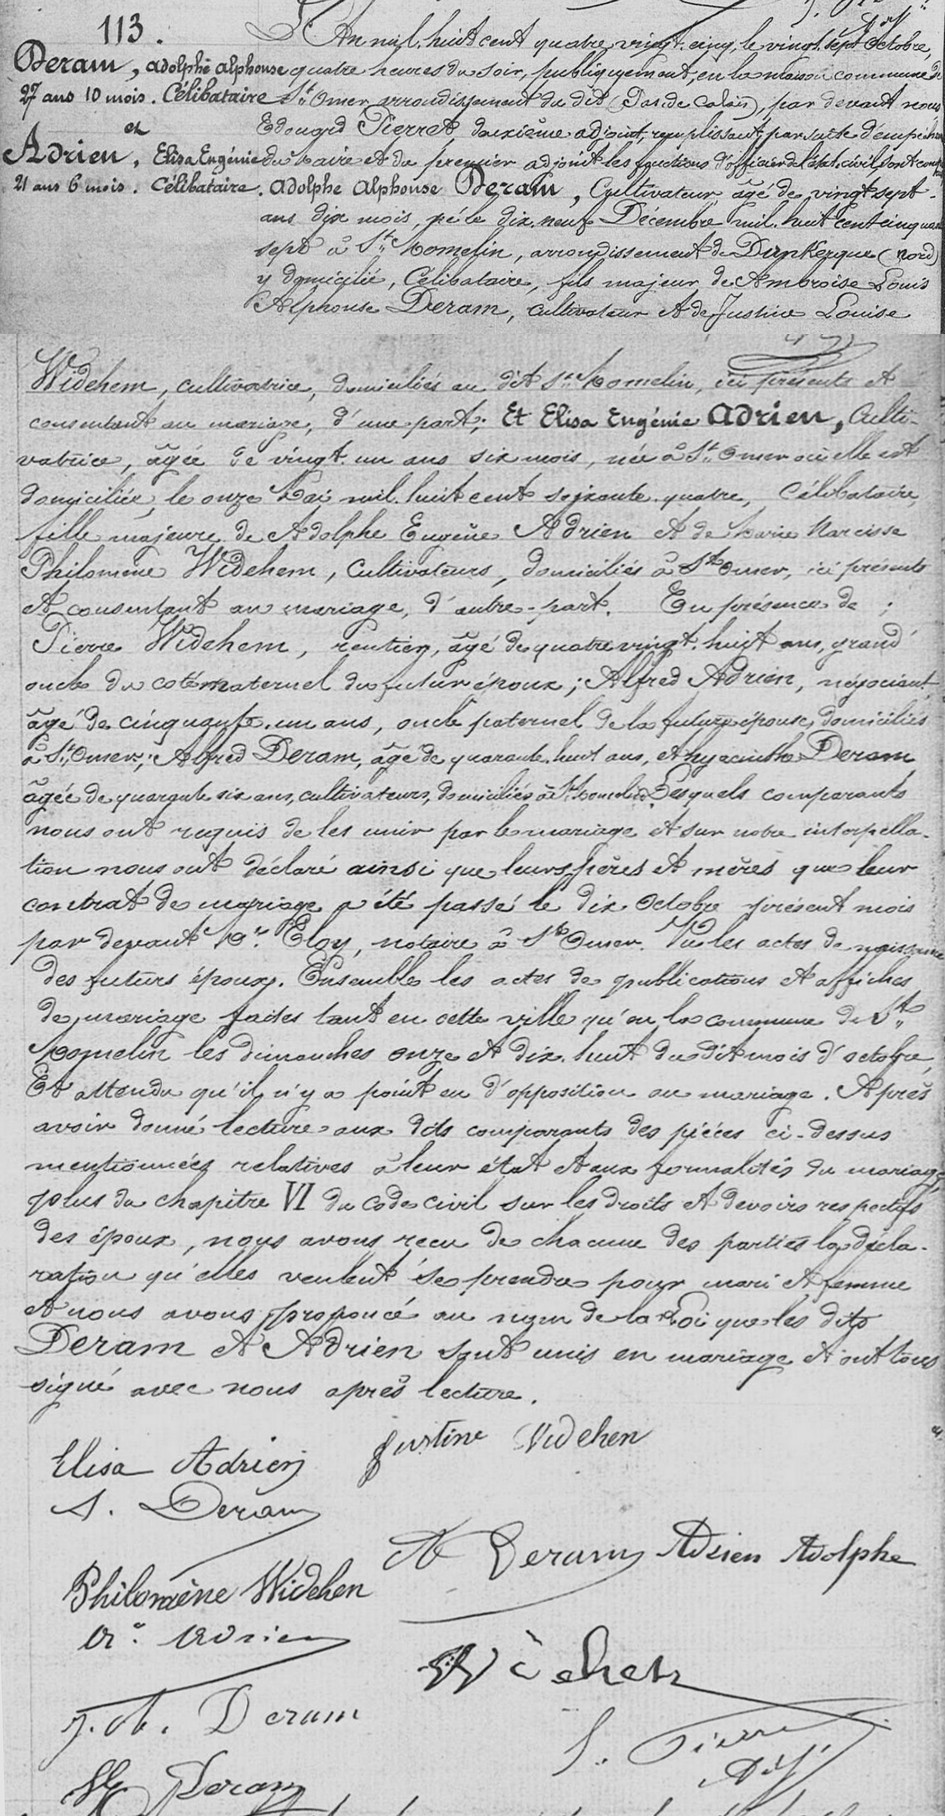 113.
Deram, Adolphe Alphonse
27 ans 10 mois. Célibataire
et
Adrien, Elisa Eugénie
21 ans 6 mois. Célibataire.
L'An mil huit cent quatre vingt cinq, le vingt sept Octobre,
quatre heures du soir, publiquement en la maison commune de
St Omer, arrondissement du dit (Pas de Calais), par devant nous
Edouard Pierret deuxième adjoint, remplissant, par suite d'empêchement
du Maire et du premier adjoint les fonctions d'officier de l'état civil, sont comparus
Adolphe Alphonse Deram, Cultivateur, âgé de vingt sept
ans dix mois, né le dix neuf Décembre mil huit cent cinquante
sept à St Momelin, arrondissement de Dunkerque (Nord)
y domicilié, Célibataire, fils majeur de Ambroise Louis
Alphonse Deram, cultivateur et de Justine Louise
Widehem, cultivatrice, domiciliés au dit St Momelin, ici présents et
consentant au mariage, d'une part; Et Elisa Eugénie Adrien, Culti-
vatrice, âgée de vingt un ans six mois, née à St Omer où elle est
domiciliée, le onze Mai mil huit cent soixante quatre, Célibataire,
fille majeure de Adolphe Eugène Adrien et de Marie Narcisse
Philomène Widehem, Cultivateurs, domiciliés à St Omer, ici présents
et consentant au mariage, d'autre part. En présence de :
Pierre Widehem, rentier, âgé de quatre vingt huit ans, grand
oncle du coté maternel du futur époux; Alfred Adrien, négociant,
âgé de cinquante un ans, oncle paternel de la future épouse, domiciliés
à St Omer; Alfred Deram, âgé de quarante huit ans, et hyacinthe Deram
âgée de quarante six ans, cultivateurs, domiciliés à St Momelin. Lesquels comparants
nous ont requis de les unir par le mariage et sur notre interpella-
tion nous ont déclaré ainsi que leurs pères et mères que leur
contrat de mariage a été passé le dix Octobre présent mois
par devant Me Eloy, notaire à St Omer. Vu les actes de naissance
des futurs époux. Ensemble les actes de publications et affiches
de mariage faites tant en cette ville qu'en la commune de St
Momelin les dimanches onze et dix huit du dit mois d'octobre,
Et attendu qu'il n'y a point eu d'opposition au mariage. Après
avoir donné lecture aux dits comparants des pièces ci-dessus
mentionnées relatives à leur état et aux formalités du mariage,
plus du chapitre VI du Code civil sur les droits et devoirs respectifs
des époux, nous avons reçu de chacune des parties la décla-
ration qu'elles veulent se prendre pour mari et femme
et nous avons prononcé au nom de la Loi que les dits
Deram et Adrien sont unis en mariage et ont tous
signé avec nous après lecture.
Elisa Adrien Justine Widehen
A. Deram
A Deram Adrien Adolphe
Philomène Widehen
Adrien
Widehem
J. Deram
Deram